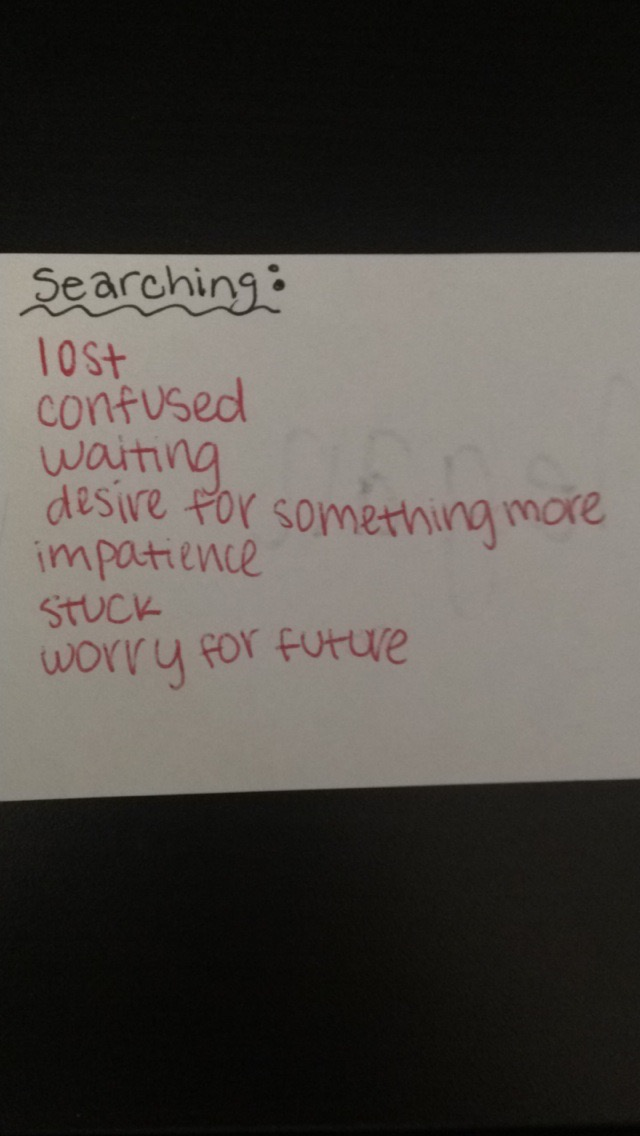 Searching:
lost
confused
waiting
desire for something more
impatience
stuck
worry for future